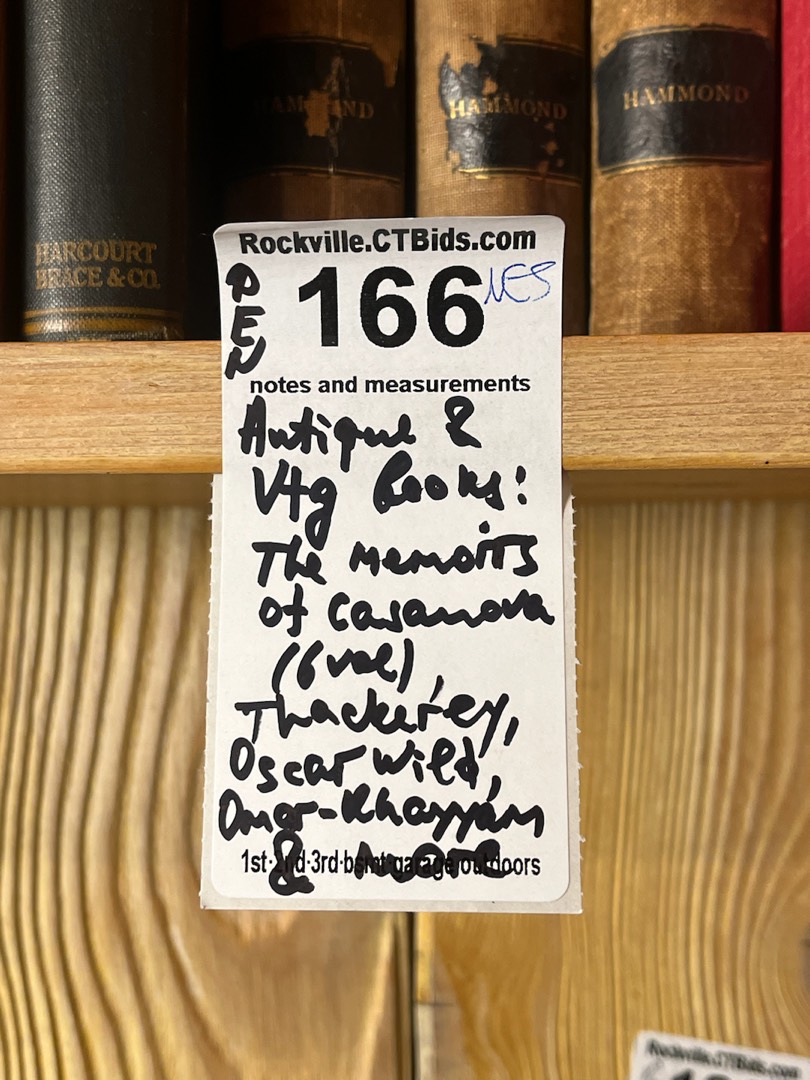 HAMMOND
HAMMOND
HARCOURT
BRACE & CO.
Rockville.CTBids.com
DEN
166
NES
notes and measurements
Antique &
Vtg Books:
The Memoirs
of Casanova
(6 vol),
Thackerey,
Oscar Wild,
Omar-Khayyám
& More
1st·2nd·3rd·bsmt·garage/outdoors
Rockville.CTBids.com